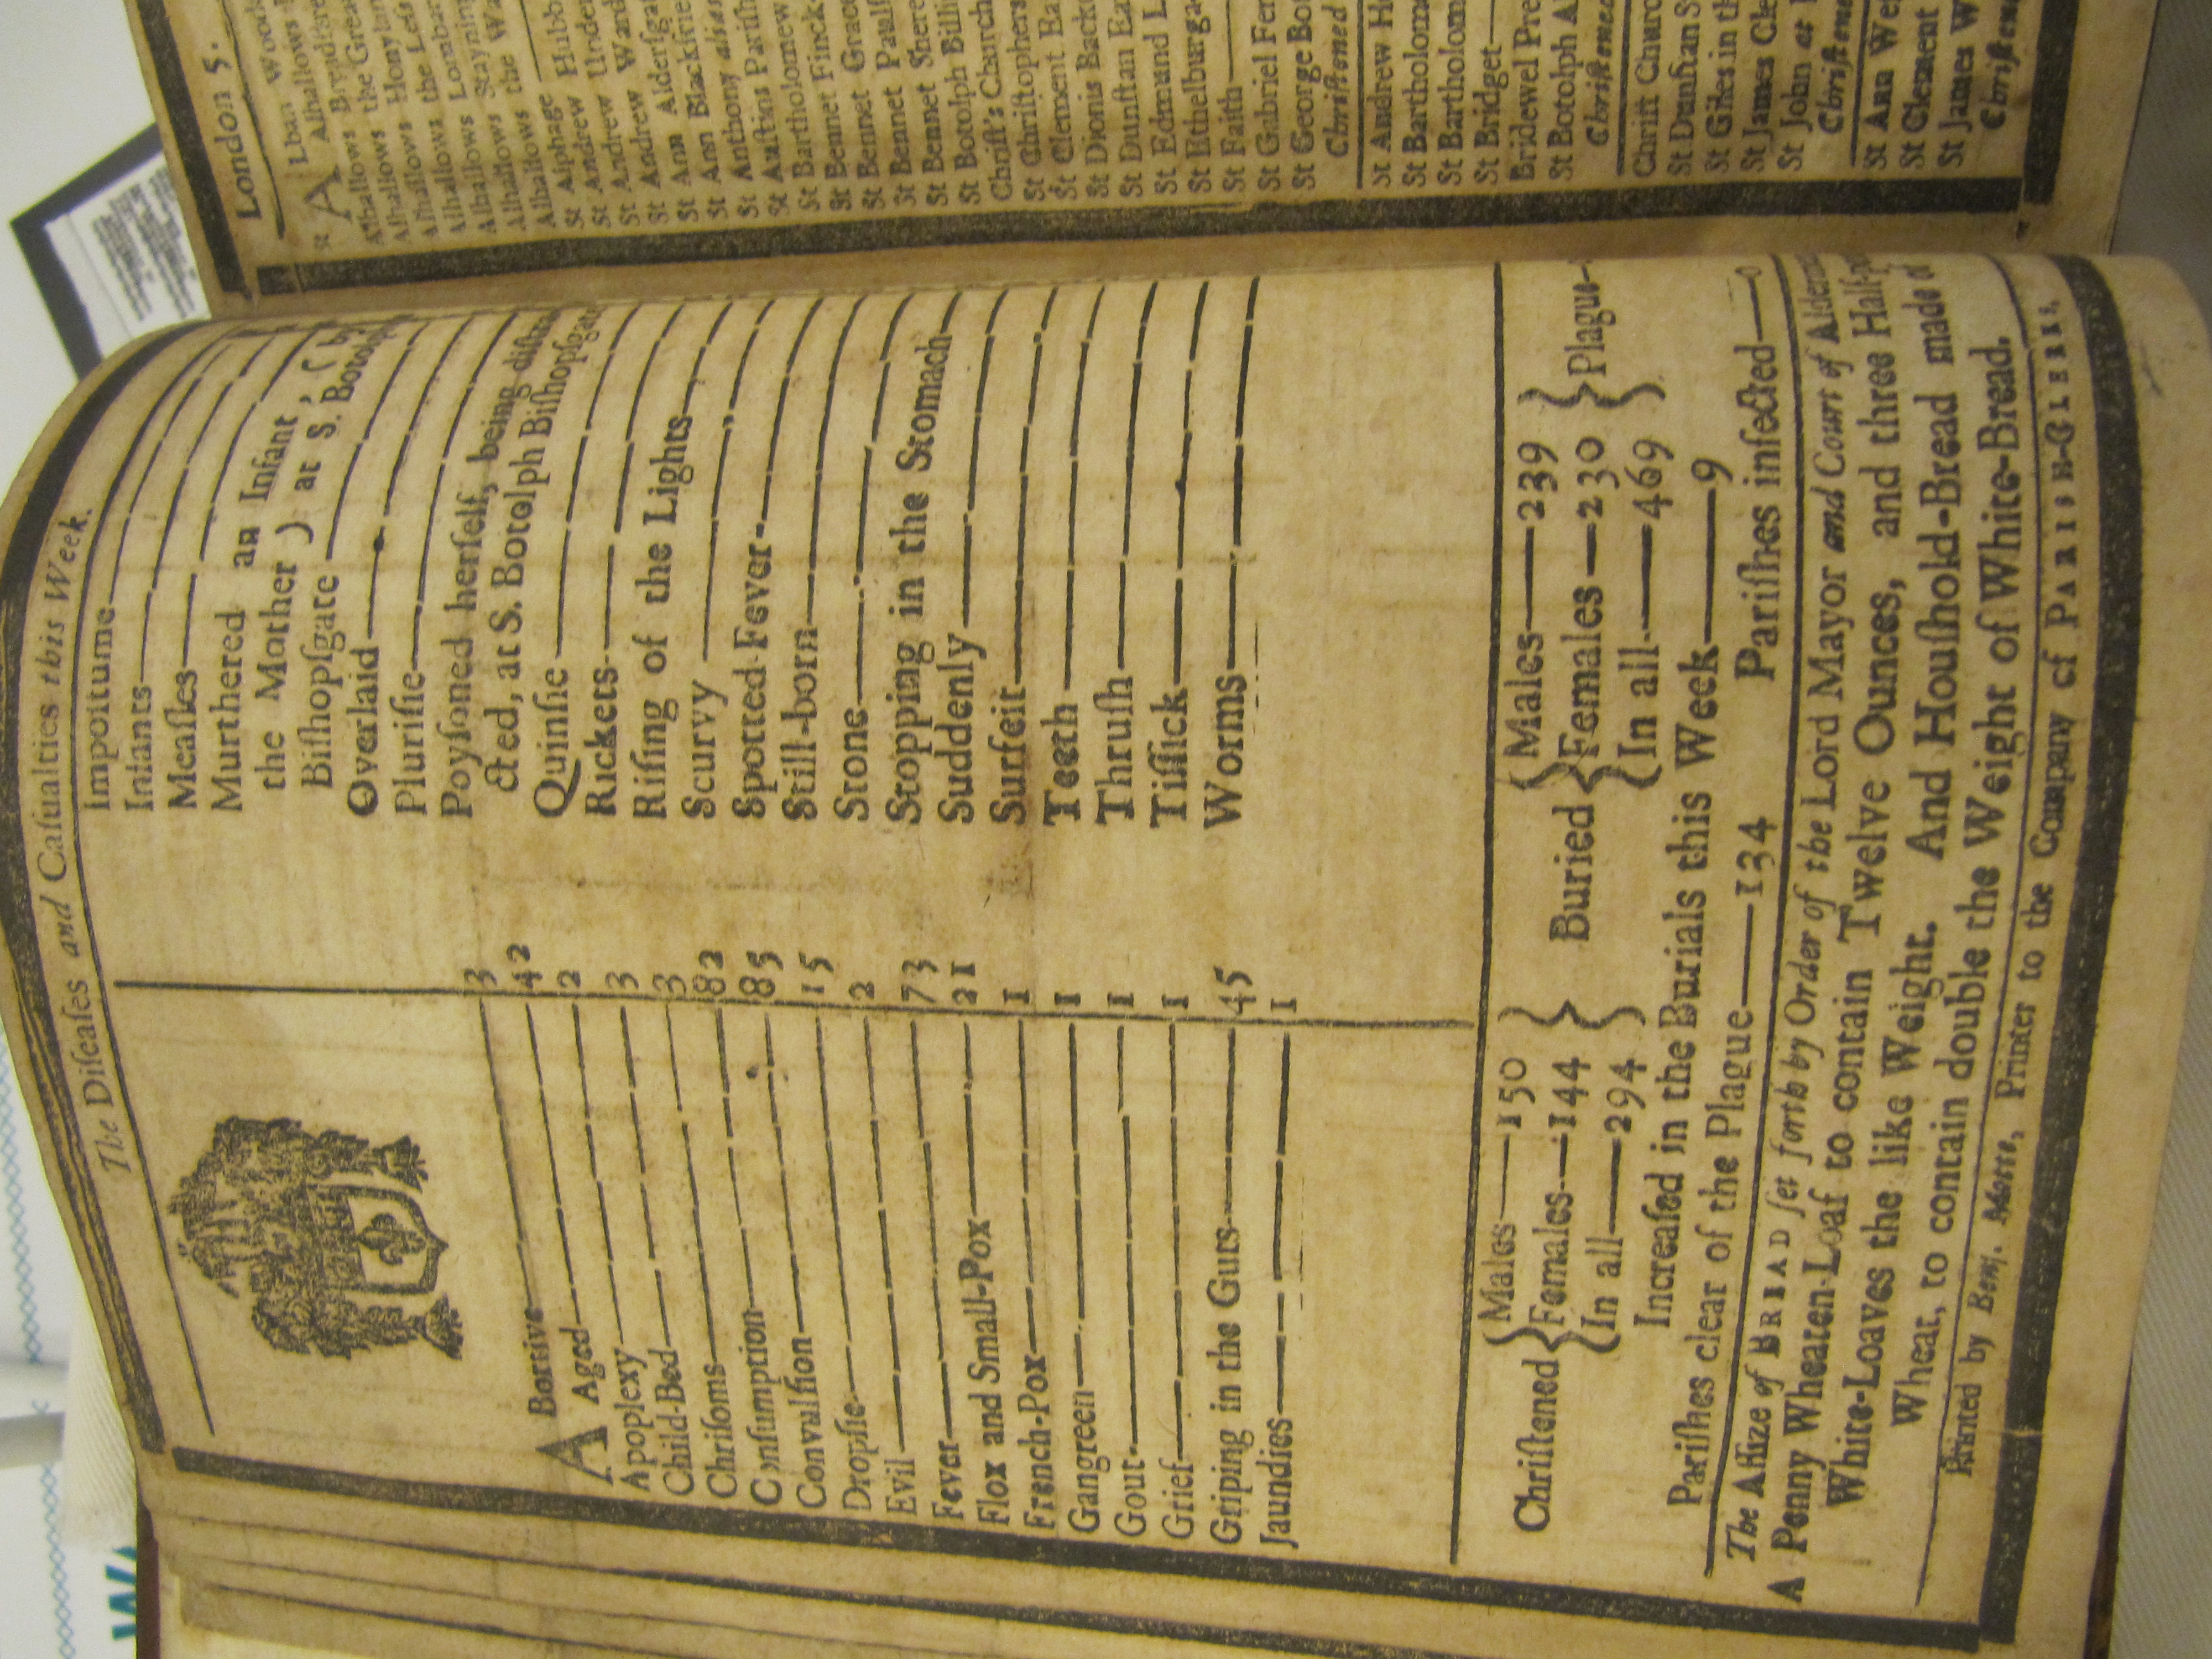 The Diſeaſes and Caſualties this Week.
A Bortive 3
Aged 42
Apoplexy 2
Child-Bed 3
Chriſoms 3
Conſumption 82
Convulſion 85
Dropſie 15
Evil 2
Fever 73
Flox and Small-Pox 21
French-Pox 1
Gangreen 1
Gout 1
Grief 1
Griping in the Guts 45
Jaundies 1
Impoſtume
Infants
Meaſles
Murthered an Infant, ( by
the Mother ) at S. Botolph
Biſhopſgate
Overlaid
Pluriſie
Poyſoned herſelf, being diſtra
cted, at S. Botolph Biſhopſgate
Quinſie
Rickets
Riſing of the Lights
Scurvy
Spotted-Fever
Still-born
Stone
Stopping in the Stomach
Suddenly
Surfeit
Teeth
Thruſh
Tiſſick
Worms
Chriſtened { Males—150 Females—144 In all—294 } Buried { Males—239 Females—230 In all—469 } Plague—
Increaſed in the Burials this Week—9
Pariſhes clear of the Plague—134 Pariſhes infected—0
The Aſſize of BREAD ſet forth by Order of the Lord Mayor and Court of Alderm
A Penny Wheaten-Loaf to contain Twelve Ounces, and three Half-p
White-Loaves the like Weight. And Houſhold-Bread made of
Wheat, to contain double the Weight of White-Bread.
Printed by Benj. Motte, Printer to the Company of PARISH-CLERKS.
London 5.
St ALban Woodſ
Alhallows B
Alhallows the Great
Alhallows Honylan
Alhallows the Leſs
Alhallows Lombar
Alhallows Stayning
Alhallows the Wa
St Alphage
St Andrew Hubb
St Andrew Underſ
St Andrew Wardr
St Ann Alderſgat
St Ann Blackfrie
St Anthony alias
St Auſtins Pariſh
St Bartholomew
St Bennet Finck
St Bennet Grace
St Bennet Paulſ
St Bennet Shere
St Botolph Billi
Chriſt's Church
St Chriſtophers
St Clement Ea
St Dionis Back
St Dunſtan Ea
St Edmund L
St Ethelburga
St Faith
St Gabriel Fen
St George Bo
Chriſtened
St Andrew H
St Bartholom
St Bartholom
St Bridget
Bridewel Pre
St Botolph Al
Chriſtened
Chriſt Churc
St Dunſtan
St Giles in th
St James Cle
St John at
Chriſtened
St Ann Weſ
St Clement
St James W
Chriſtene